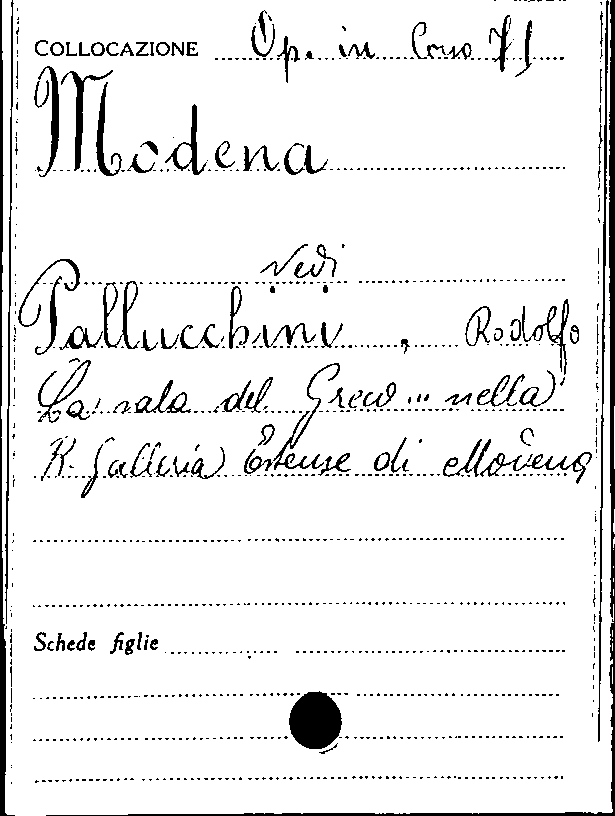 COLLOCAZIONE Op. in Corso 71
Modena
Vedi
Pallucchini, Rodolfo
La sala del Greco... nella
R. Galleria Estense di Modena
Schede figlie